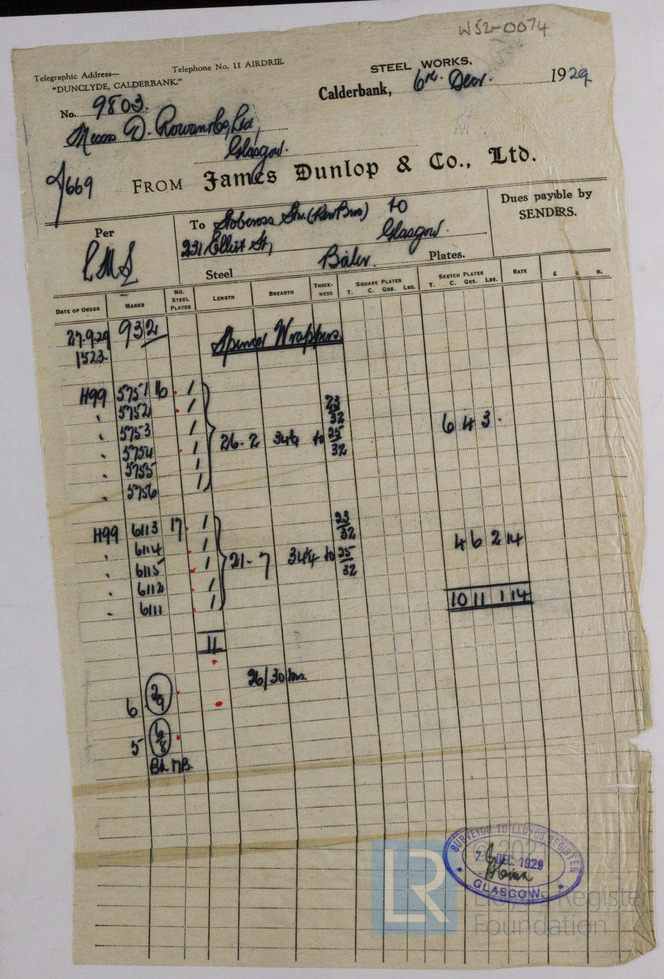 W52-0074
Telegraphic Address—
"DUNCLYDE, CALDERBANK."
Telephone No. 11 AIRDRIE.
STEEL WORKS,
Calderbank, 6th Decr. 1929
No. 9803.
Messrs D. Rowan & Co, Ltd,
Glasgow.
FROM James Dunlop & Co., Ltd.
Per
To Stobcross Stn. to
231 Elliot St, Glasgow.
Dues payable by
SENDERS.
Steel Boiler Plates.
DATE OF ORDER MARKS NO. STEEL PLATES LENGTH BREADTH THICKNESS SQUARE PLATES T. C. Qrs. Lbs. SKETCH PLATES T. C. Qrs. Lbs. RATE £ s. D.
27.9.29 932 Wrappers
1523
H99 5751 16 1
" 5752 1
" 5753 1
" 5754 1
" 5755 1
" 5756 1
26-2 34 1/4 to 23/32 25/32 6 4 3 -
H99 6113 17 1
" 6114 1
" 6115 1
" 6112 1
" 6111 1
21-7 34 1/4 to 23/32 25/32 4 6 2 14
10 11 1 14
11
26/30 tns.
6
5
SURVEYOR TO LLOYDS REGISTER
DEC 1929
GLASGOW
LR
Lloyd's Register
Foundation